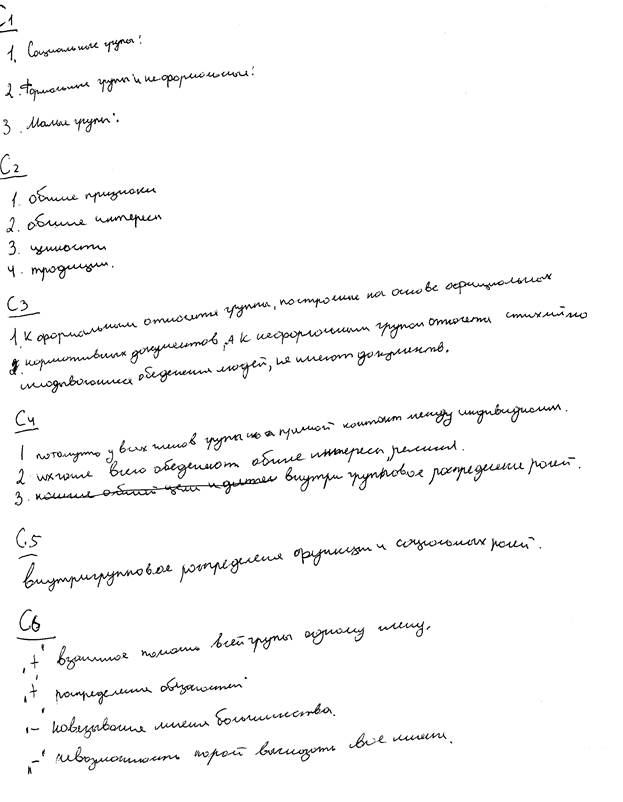 С1
1. Социальные групы:
2. Формальные групы и неформальные:
3. Малые групы:
С2
1. общие признаки
2. общие интересы
3. ценности
4. традиции.
С3
1. К формальным относятся группы, построение на основе официальных
нормативных документов, А к неформальным групам относятся стихийно
обеденения людей, не имеют документв.
С4
1 потомучто у всех членов групы прямой контакт между индивидами.
2 их чаще всего обеденяют общие интересы, религия.
3. внутри групповое роспределение ролей.
С.5
внутригрупповое роспределения функции и социальных ролей.
С6
"+" взаимное помощь всей групы одному члену.
"+" роспределения обязаностей
"-" навязывания мнения большинства.
"-" невозможность порой высказать своё мнение.